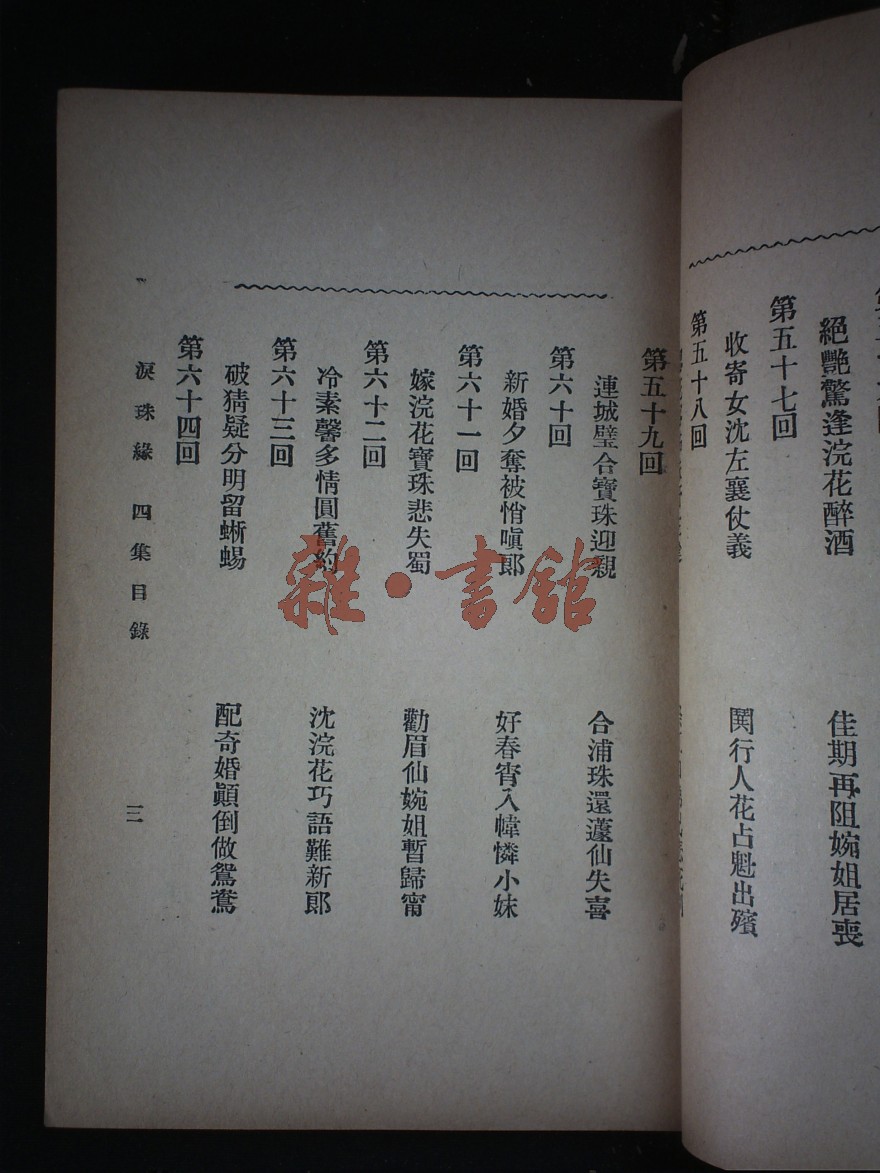 絕艷驚逢浣花醉酒　佳期再阻婉姐居喪
第五十七回
收寄女沈左襄仗義　鬨行人花占魁出殯
第五十八回
第五十九回
連城璧合寶珠迎親　合浦珠還蘧仙失喜
第六十回
新婚夕奪被悄嗔郎　好春宵入幃憐小妹
第六十一回
嫁浣花寶珠悲失蜀　勸眉仙婉姐暫歸甯
第六十二回
冷素馨多情圓舊約　沈浣花巧語難新郎
第六十三回
破猜疑分明留蜥蜴　配奇婚顚倒做鴛鴦
第六十四回
淚珠緣　四集目錄　三
雜·書館